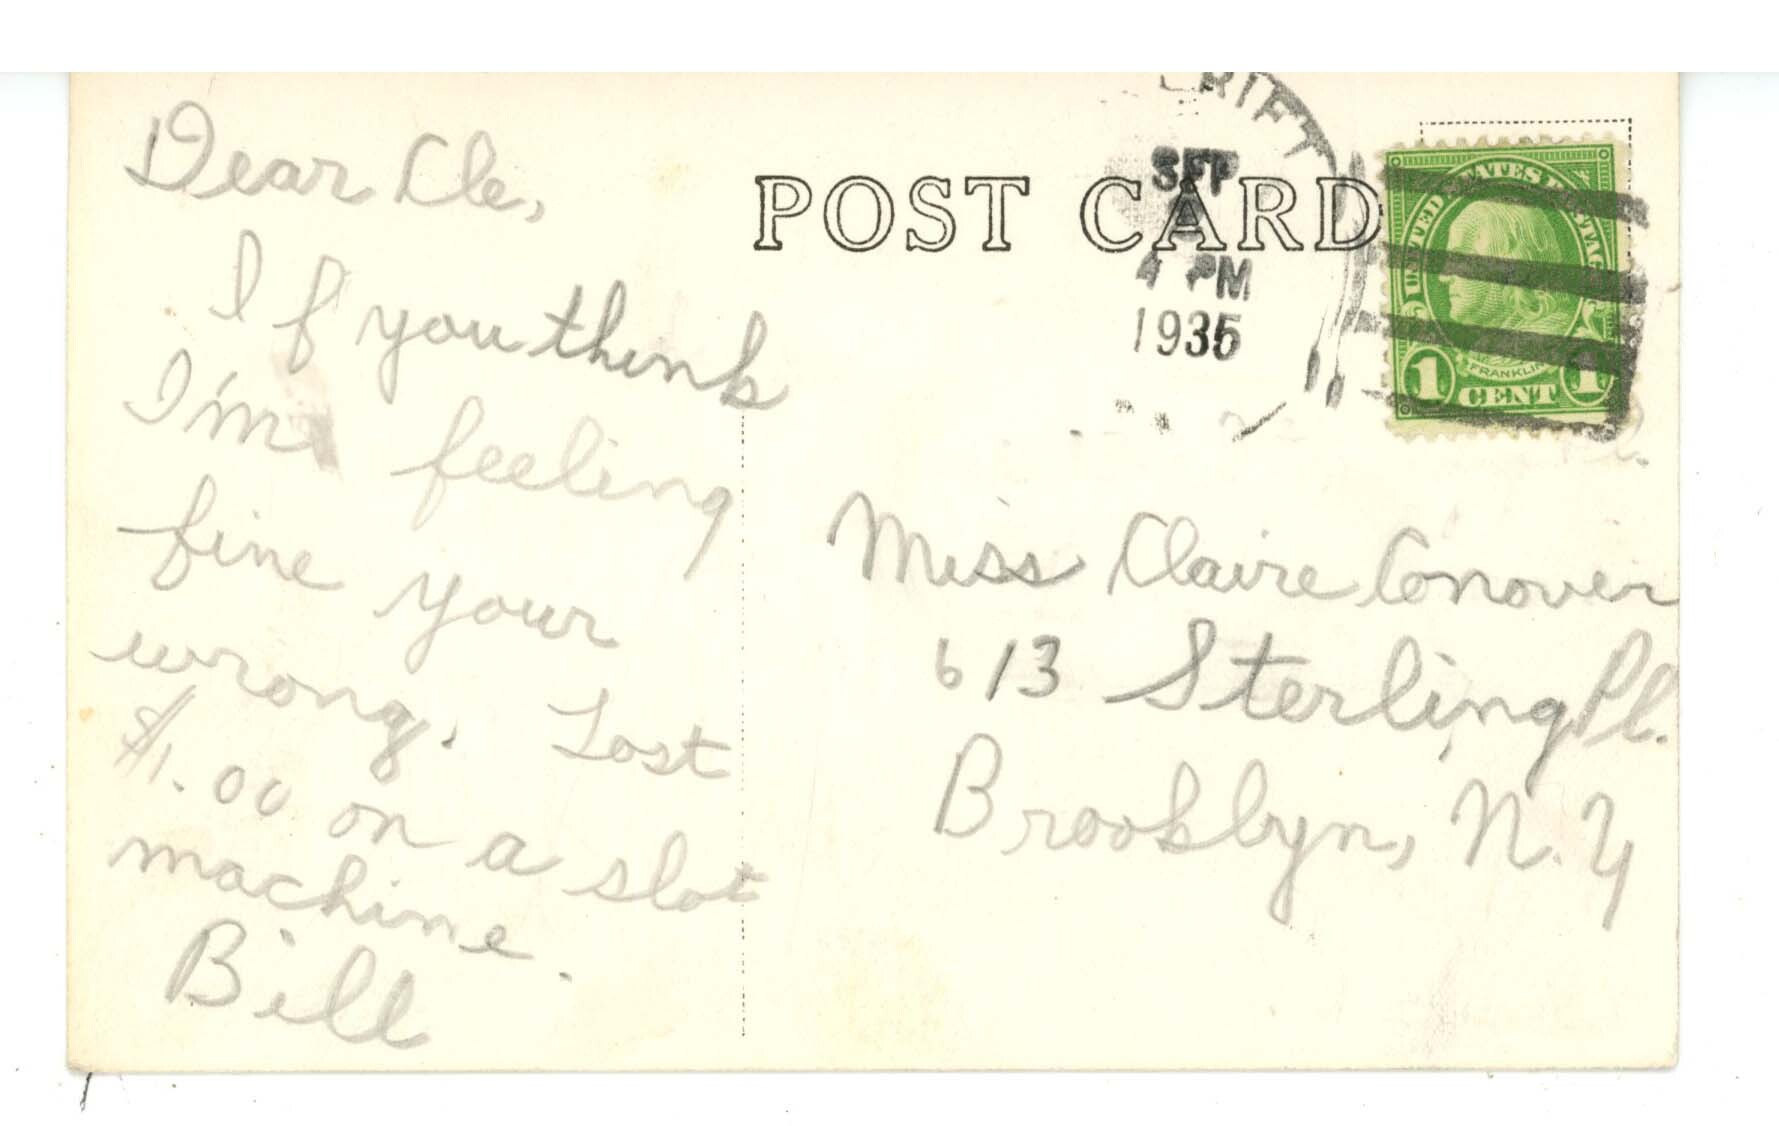 Dear Cle,
If you think
I'm feeling
fine your
wrong. Lost
$1.00 on a slot
machine.
Bill
POST CARD
RIFT
SEP
4 PM
1935
UNITED STATES POSTAGE
FRANKLIN
1 CENT 1
Miss Claire Conover
613 Sterling Pl.
Brooklyn, N.Y